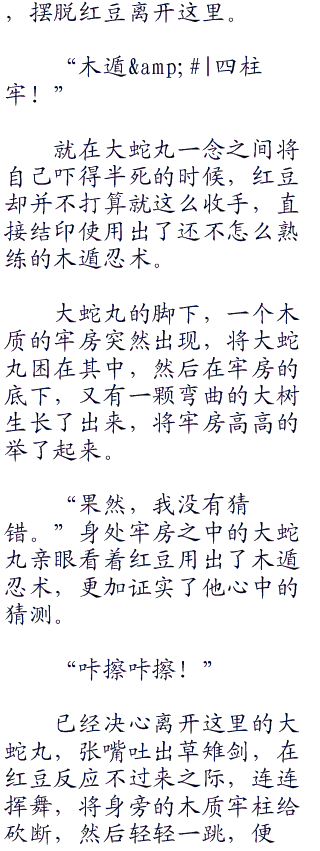 ，摆脱红豆离开这里。
“木遁&amp;#|四柱
牢！”
就在大蛇丸一念之间将
自己吓得半死的时候，红豆
却并不打算就这么收手，直
接结印使用出了还不怎么熟
练的木遁忍术。
大蛇丸的脚下，一个木
质的牢房突然出现，将大蛇
丸困在其中，然后在牢房的
底下，又有一颗弯曲的大树
生长了出来，将牢房高高的
举了起来。
“果然，我没有猜
错。”身处牢房之中的大蛇
丸亲眼看着红豆用出了木遁
忍术，更加证实了他心中的
猜测。
“咔擦咔擦！”
已经决心离开这里的大
蛇丸，张嘴吐出草雉剑，在
红豆反应不过来之际，连连
挥舞，将身旁的木质牢柱给
砍断，然后轻轻一跳，便